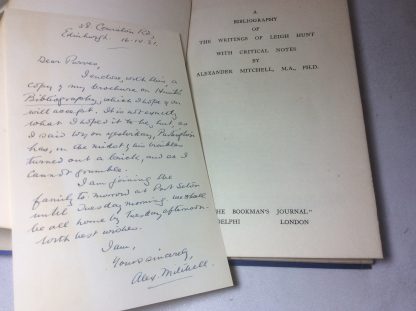 Edinburgh
Dear Purves,
I enclose, with this, a
copy of my brochure on Hunt's
Bibliography, which I hope you
will accept. It is not exactly
what I hoped it to be, but, as
I said to you yesterday,
has, in the midst of his troubles
turned out a book, and so I
cannot grumble.
I am joining the
family to-morrow at Port Seton
until Tuesday morning. We shall
be all home by Tuesday afternoon.
With best wishes.
I am,
Yours sincerely,
Alex. Mitchell.
A
BIBLIOGRAPHY
OF
THE WRITINGS OF LEIGH HUNT
WITH CRITICAL NOTES
BY
ALEXANDER MITCHELL, M.A., PH.D.
THE BOOKMAN'S JOURNAL"
DELPHI LONDON